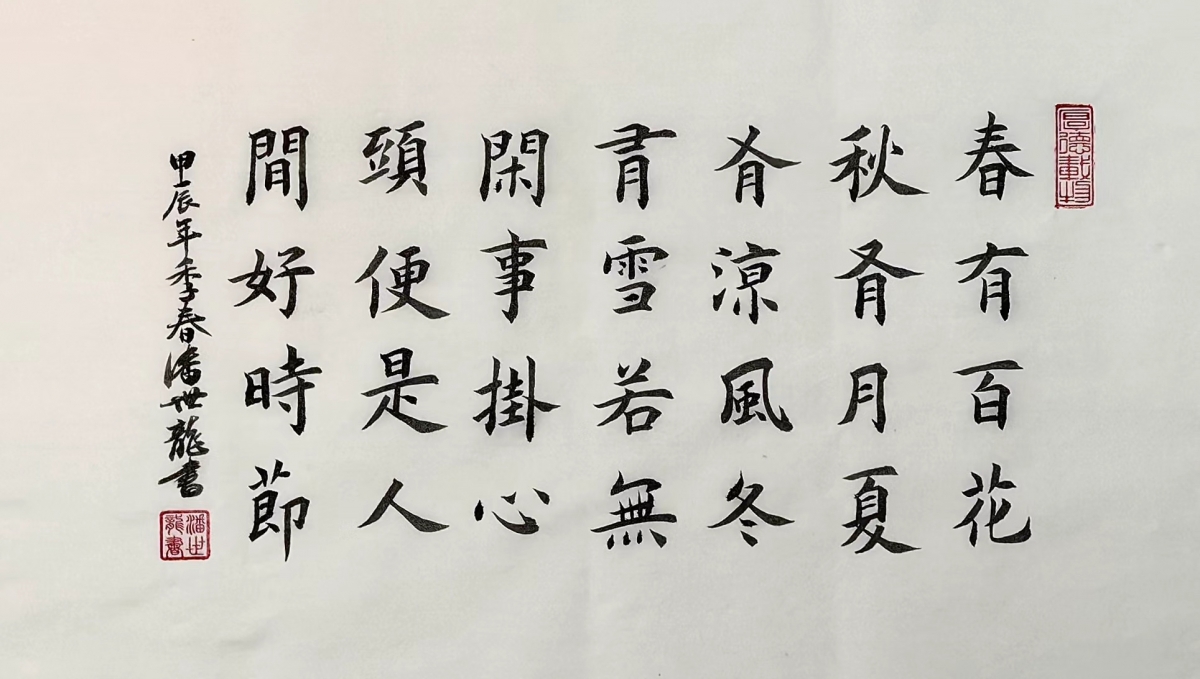 厚德載物
春有百花
秋有月夏
有涼風冬
有雪若無
閑事掛心
頭便是人
間好時節
甲辰年季春潘世龍書
潘世龍書